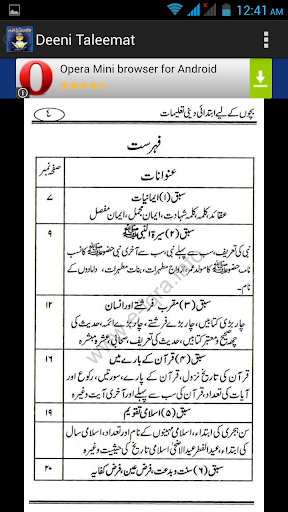 12:41 AM
Deeni Taleemat
Opera Mini browser for Android
بچوں کے لیے ابتدائی دینی تعلیمات
۴
فہرست
عنوانات
صفحہ نمبر
سبق (۱) ایمانیات
۷
عقائد، کلمہ، کلمہ شہادت، ایمان مجمل، ایمان مفصل
سبق (۲) سیرۃ النبی ﷺ
۹
نبی کی تعریف، سب سے پہلے نبی، سب سے آخری نبی حضور ﷺ کا نسب
نامہ، حضور ﷺ کا مولد، عمر، ازواج مطہرات، بنات مطہرات، دامادوں کے
نام
سبق (۳) مقرب فرشتے اور انسان
۱۲
چار بڑی کتابیں، چار بڑے فرشتے، چار بڑے ائمہ، حدیث کی
چھ صحیح و معتبر کتابیں، حدیث کی تعریف، صحابی، عشرہ مبشرہ
سبق (۴) قرآن کے بارے میں
۱۶
قرآن کی تاریخ نزول، قرآن کے پارے، سورتیں، رکوع اور
آیات کی تعداد، قرآن کی سب سے پہلے اور آخری آیت وغیرہ
سبق (۵) اسلامی تقویم
۱۹
سن ہجری کی ابتداء، اسلامی مہینوں کے نام اور تعداد، اسلامی سال کی
ابتداء، عید الفطر، عید الاضحیٰ، اسلامی تاریخ کی حیثیت وغیرہ
سبق (۶) سنت و بدعت، فرض عین، فرض کفایہ
۲۰